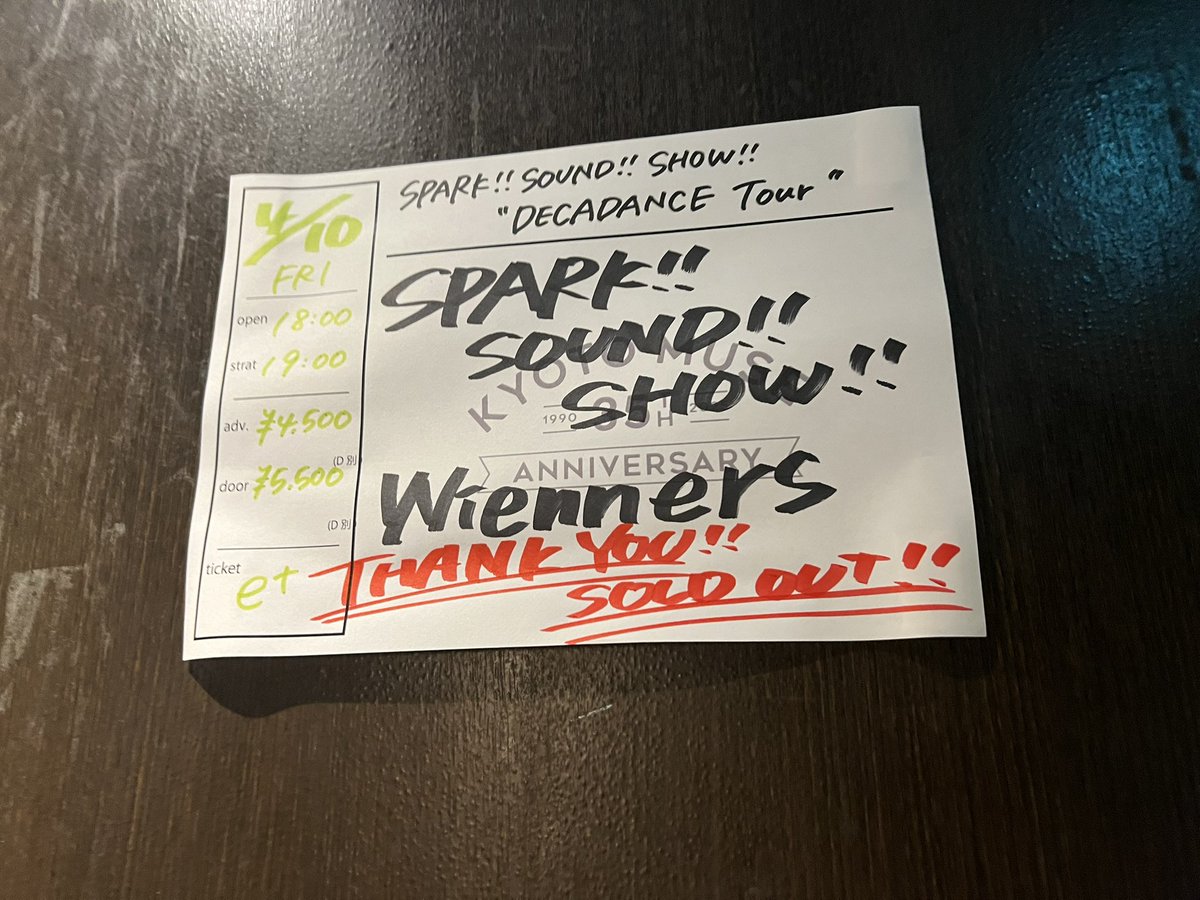 4/10
FRI
open 18:00
strat 19:00
adv. ¥4.500
(D別)
door ¥5.500
(D別)
ticket
e+
SPARK!! SOUND!! SHOW!!
"DECADANCE Tour"
SPARK!!
SOUND!!
SHOW!!
KYOTO MUS
1990
TH
ANNIVERSARY
Wienners
THANK YOU!!
SOLD OUT!!